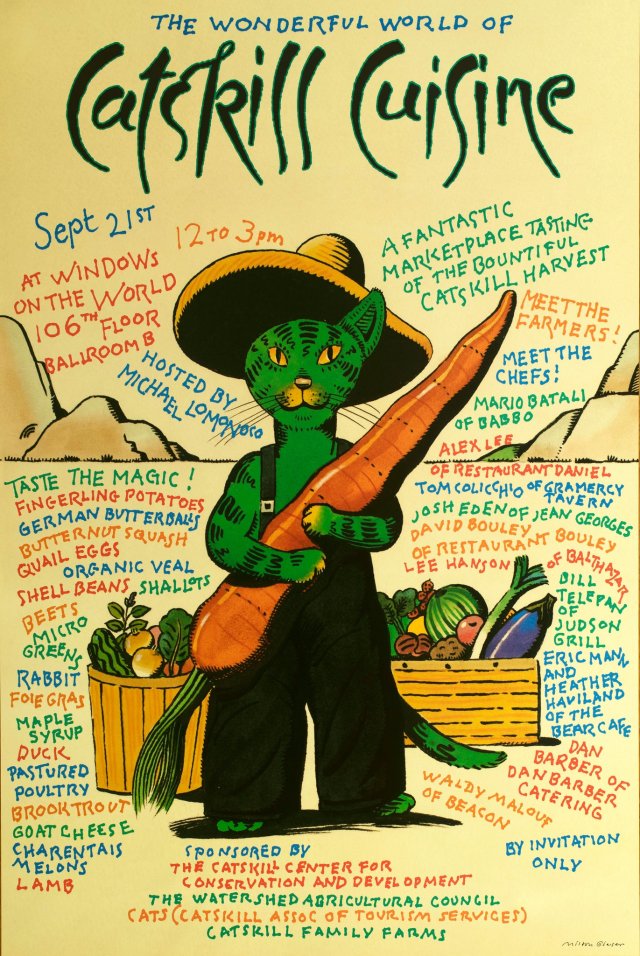 THE WONDERFUL WORLD OF
Catskill Cuisine
Sept 21ST
12 TO 3 pm
AT WINDOWS
ON THE WORLD
106TH FLOOR
BALLROOM B
HOSTED BY
MICHAEL LOMONOCO
A FANTASTIC
MARKETPLACE TASTING
OF THE BOUNTIFUL
CATSKILL HARVEST
MEET THE
FARMERS!
MEET THE
CHEFS!
MARIO BATALI
OF BABBO
ALEX LEE
OF RESTAURANT DANIEL
TOM COLICCHIO OF GRAMERCY
TAVERN
JOSH EDEN OF JEAN GEORGES
DAVID BOULEY
OF RESTAURANT BOULEY
LEE HANSON OF BALTHAZAR
BILL
TELEPAN
OF
JUDSON
GRILL
ERIC MANN
AND
HEATHER
HAVILAND
OF THE
BEAR CAFE
DAN
BARBER OF
DAN BARBER
CATERING
WALDY MALOUF
OF BEACON
BY INVITATION
ONLY
TASTE THE MAGIC!
FINGERLING POTATOES
GERMAN BUTTERBALLS
BUTTERNUT SQUASH
QUAIL EGGS
ORGANIC VEAL
SHELL BEANS SHALLOTS
BEETS
MICRO
GREENS
RABBIT
FOIE GRAS
MAPLE
SYRUP
DUCK
PASTURED
POULTRY
BROOK TROUT
GOAT CHEESE
CHARENTAIS
MELONS
LAMB
SPONSORED BY
THE CATSKILL CENTER FOR
CONSERVATION AND DEVELOPMENT
THE WATERSHED AGRICULTURAL COUNCIL
CATS (CATSKILL ASSOC OF TOURISM SERVICES)
CATSKILL FAMILY FARMS
Milton Glaser